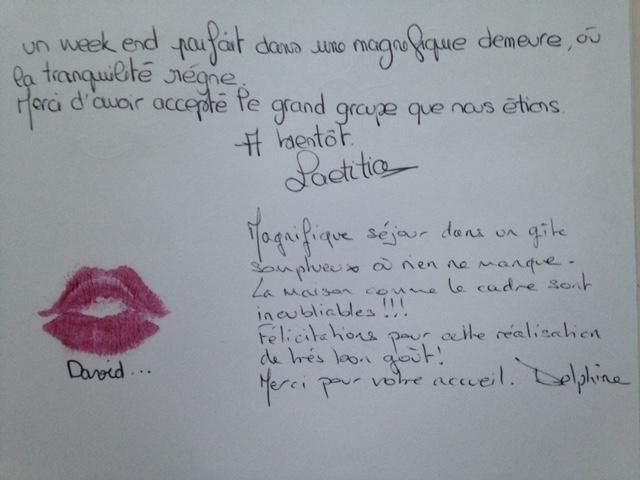 un week end parfait dans une magnifique demeure, où
la tranquilité règne.
Merci d'avoir accepté le grand groupe que nous étions.
A bientôt.
Laetitia
Magnifique séjour dans un gîte
somptueux où rien ne manque.
La maison comme le cadre sont
inoubliables !!!
Félicitations pour cette réalisation
de très bon goût !
Merci pour votre accueil. Delphine
David...